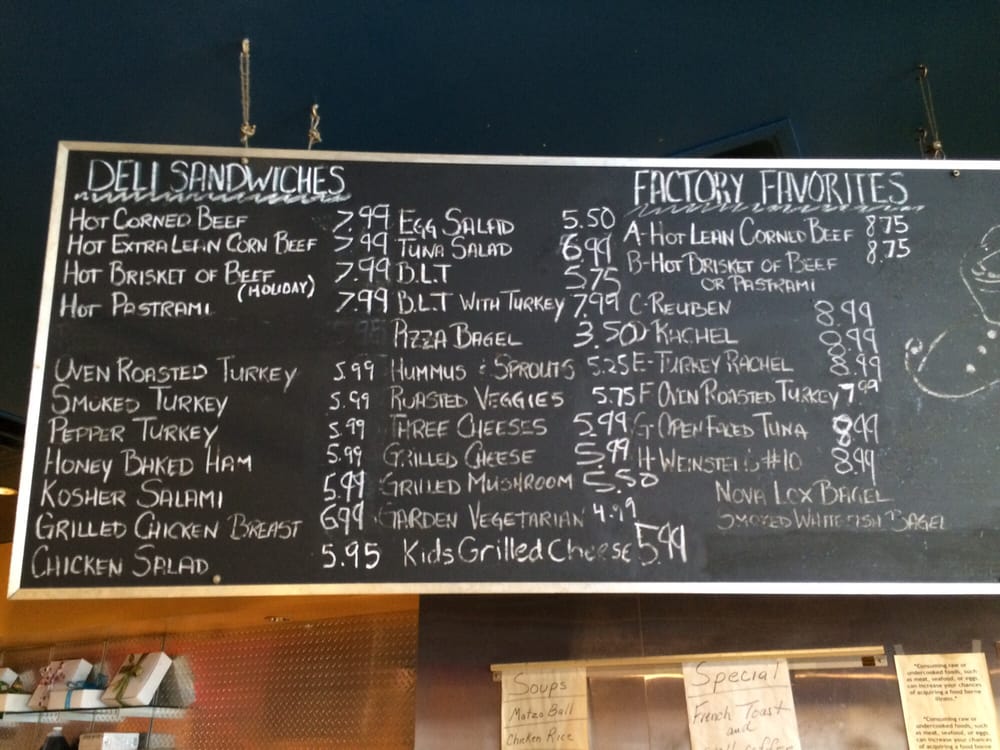 DELI SANDWICHES
HOT CORNED BEEF 7.99
HOT EXTRA LEAN CORN BEEF 7.99
HOT BRISKET OF BEEF 7.99
(HOLIDAY)
HOT PASTRAMI 7.99
OVEN ROASTED TURKEY 5.99
SMOKED TURKEY 5.99
PEPPER TURKEY 5.99
HONEY BAKED HAM 5.99
KOSHER SALAMI 5.99
GRILLED CHICKEN BREAST 6.99
CHICKEN SALAD 5.95
EGG SALAD 5.50
TUNA SALAD 6.99
B.L.T 5.75
B.L.T WITH TURKEY 7.99
PIZZA BAGEL 3.50
HUMMUS & SPROUTS 5.25
ROASTED VEGGIES 5.75
THREE CHEESES 5.99
GRILLED CHEESE 5.99
GRILLED MUSHROOM 5.50
GARDEN VEGETARIAN 4.99
Kids Grilled Cheese 5.99
FACTORY FAVORITES
A-HOT LEAN CORNED BEEF 8.75
B-HOT BRISKET OF BEEF 8.75
OR PASTRAMI
C-REUBEN 8.99
D RACHEL 8.99
E-TURKEY RACHEL 8.99
F OVEN ROASTED TURKEY 7.99
G OPEN FACED TUNA 8.99
H WEINSTEIN'S #10 8.99
NOVA LOX BAGEL
SMOKED WHITEFISH BAGEL
Soups
Matzo Ball
Chicken Rice
Special
French Toast
and
"Consuming raw or
undercooked foods, such
as meat, seafood, or eggs,
can increase your chances
of acquiring a food borne
illness."
"Consuming raw or
undercooked foods, such
as meat, seafood, or eggs,
can increase your chances
of acquiring a food borne